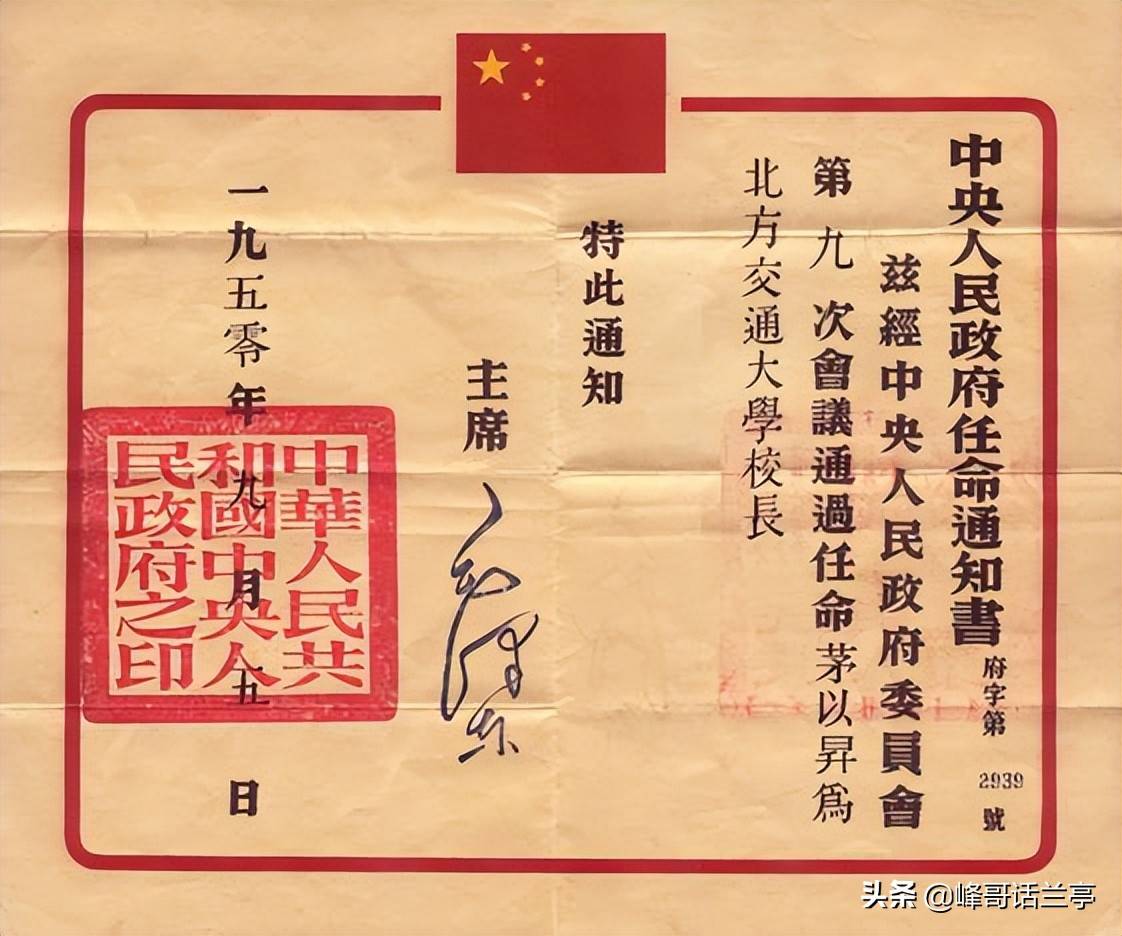 中央人民政府任命通知書 府字第 2939 號
兹經中央人民政府委員會
第九次會議通過任命茅以昇為
北方交通大學校長
特此通知
主席 毛澤東
一九五零年九月五日
中華人民共
和國中央人
民政府之印
头条 @峰哥话兰亭